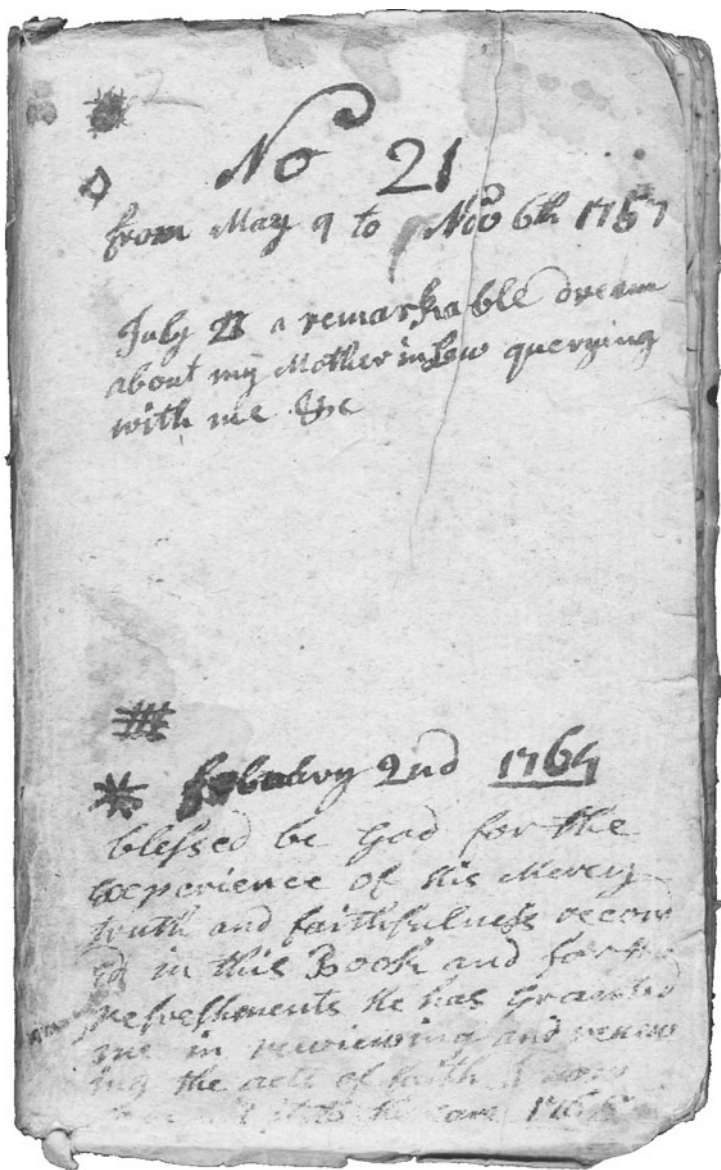 No 21
from May 9 to Nov 6th 1757
July 27 a remarkable dream
about my Mother in Law querying
with me &c
february 2nd 1767
blessed be God for the
experience of His Mercy
truth and faithfulness record
ed in this Book and for the
refreshments He has Granted
me in reviewing and renew
ing the acts of faith